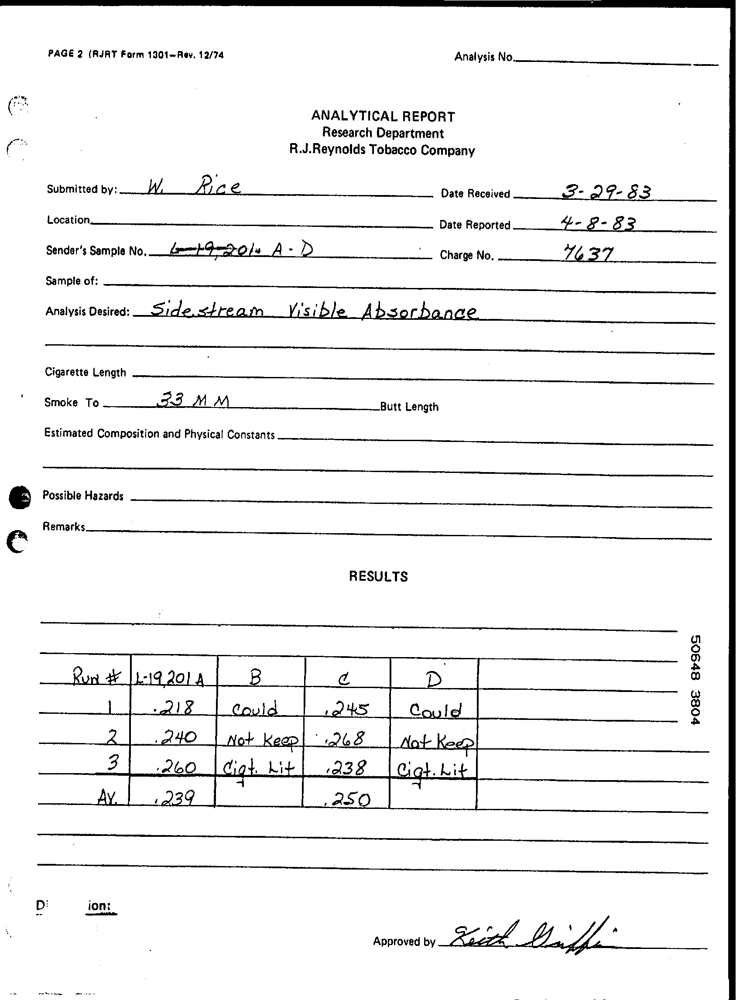 PAGE 2 (RJRT Form 1301-Rev. 12/74
Analysis No.
ANALYTICAL REPORT
Research Department
R.J.Reynolds Tobacco Company
Submitted by: W. Rice
Date Received 3-29-83
Location
Date Reported 4-8-83
Sender's Sample No. L-19,201 A-D
Charge No. 7637
Sample of:
Analysis Desired: Sidestream Visible Absorbance
Cigarette Length
Smoke To 33 MM Butt Length
Estimated Composition and Physical Constants
Possible Hazards
Remarks
RESULTS
Run # L-19,201 A B C D
1 .218 Could .245 Could
2 .240 Not Keep .268 Not Keep
3 .260 Cigt. Lit .238 Cigt. Lit
AV. .239 .250
50648 3804
Approved by Keith Griffin